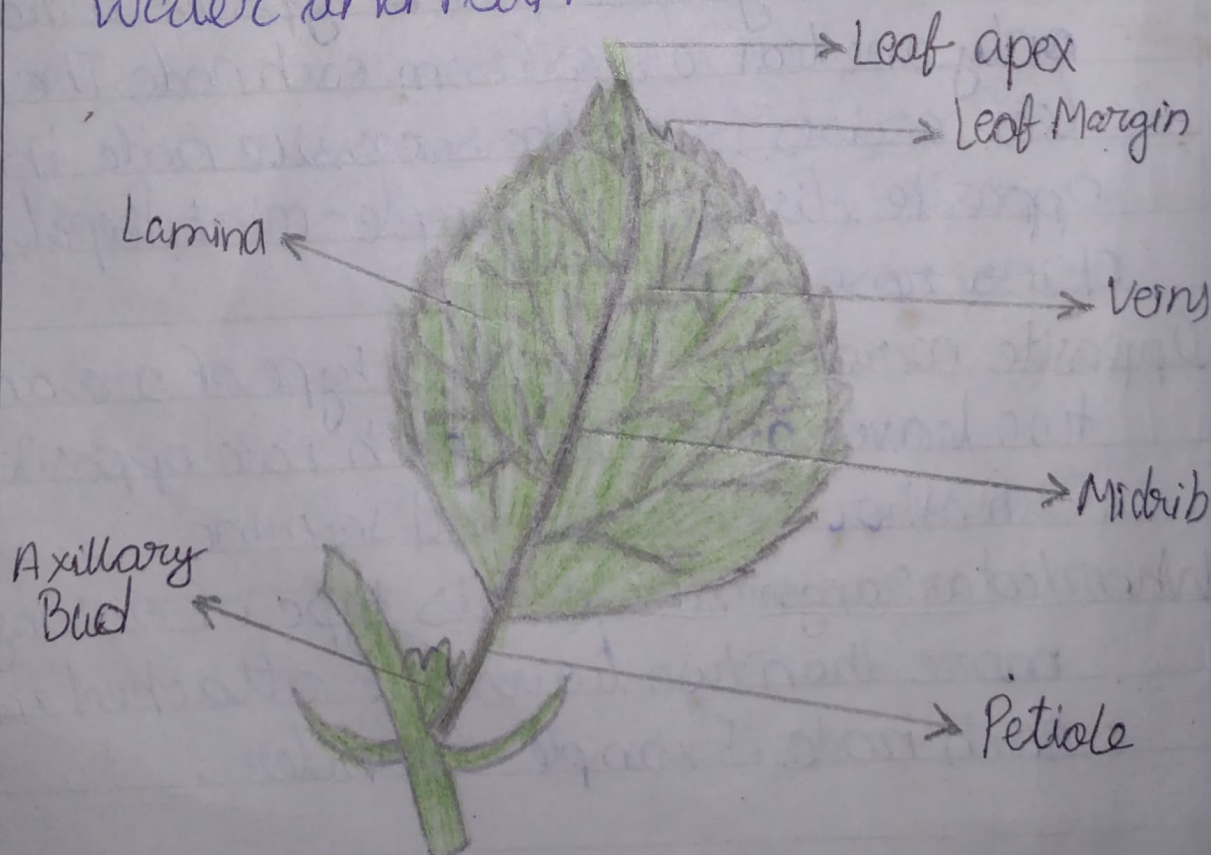 Water and
Leaf apex
Leaf Margin
Lamina
Veins
Midrib
Axillary
Bud
Petiole